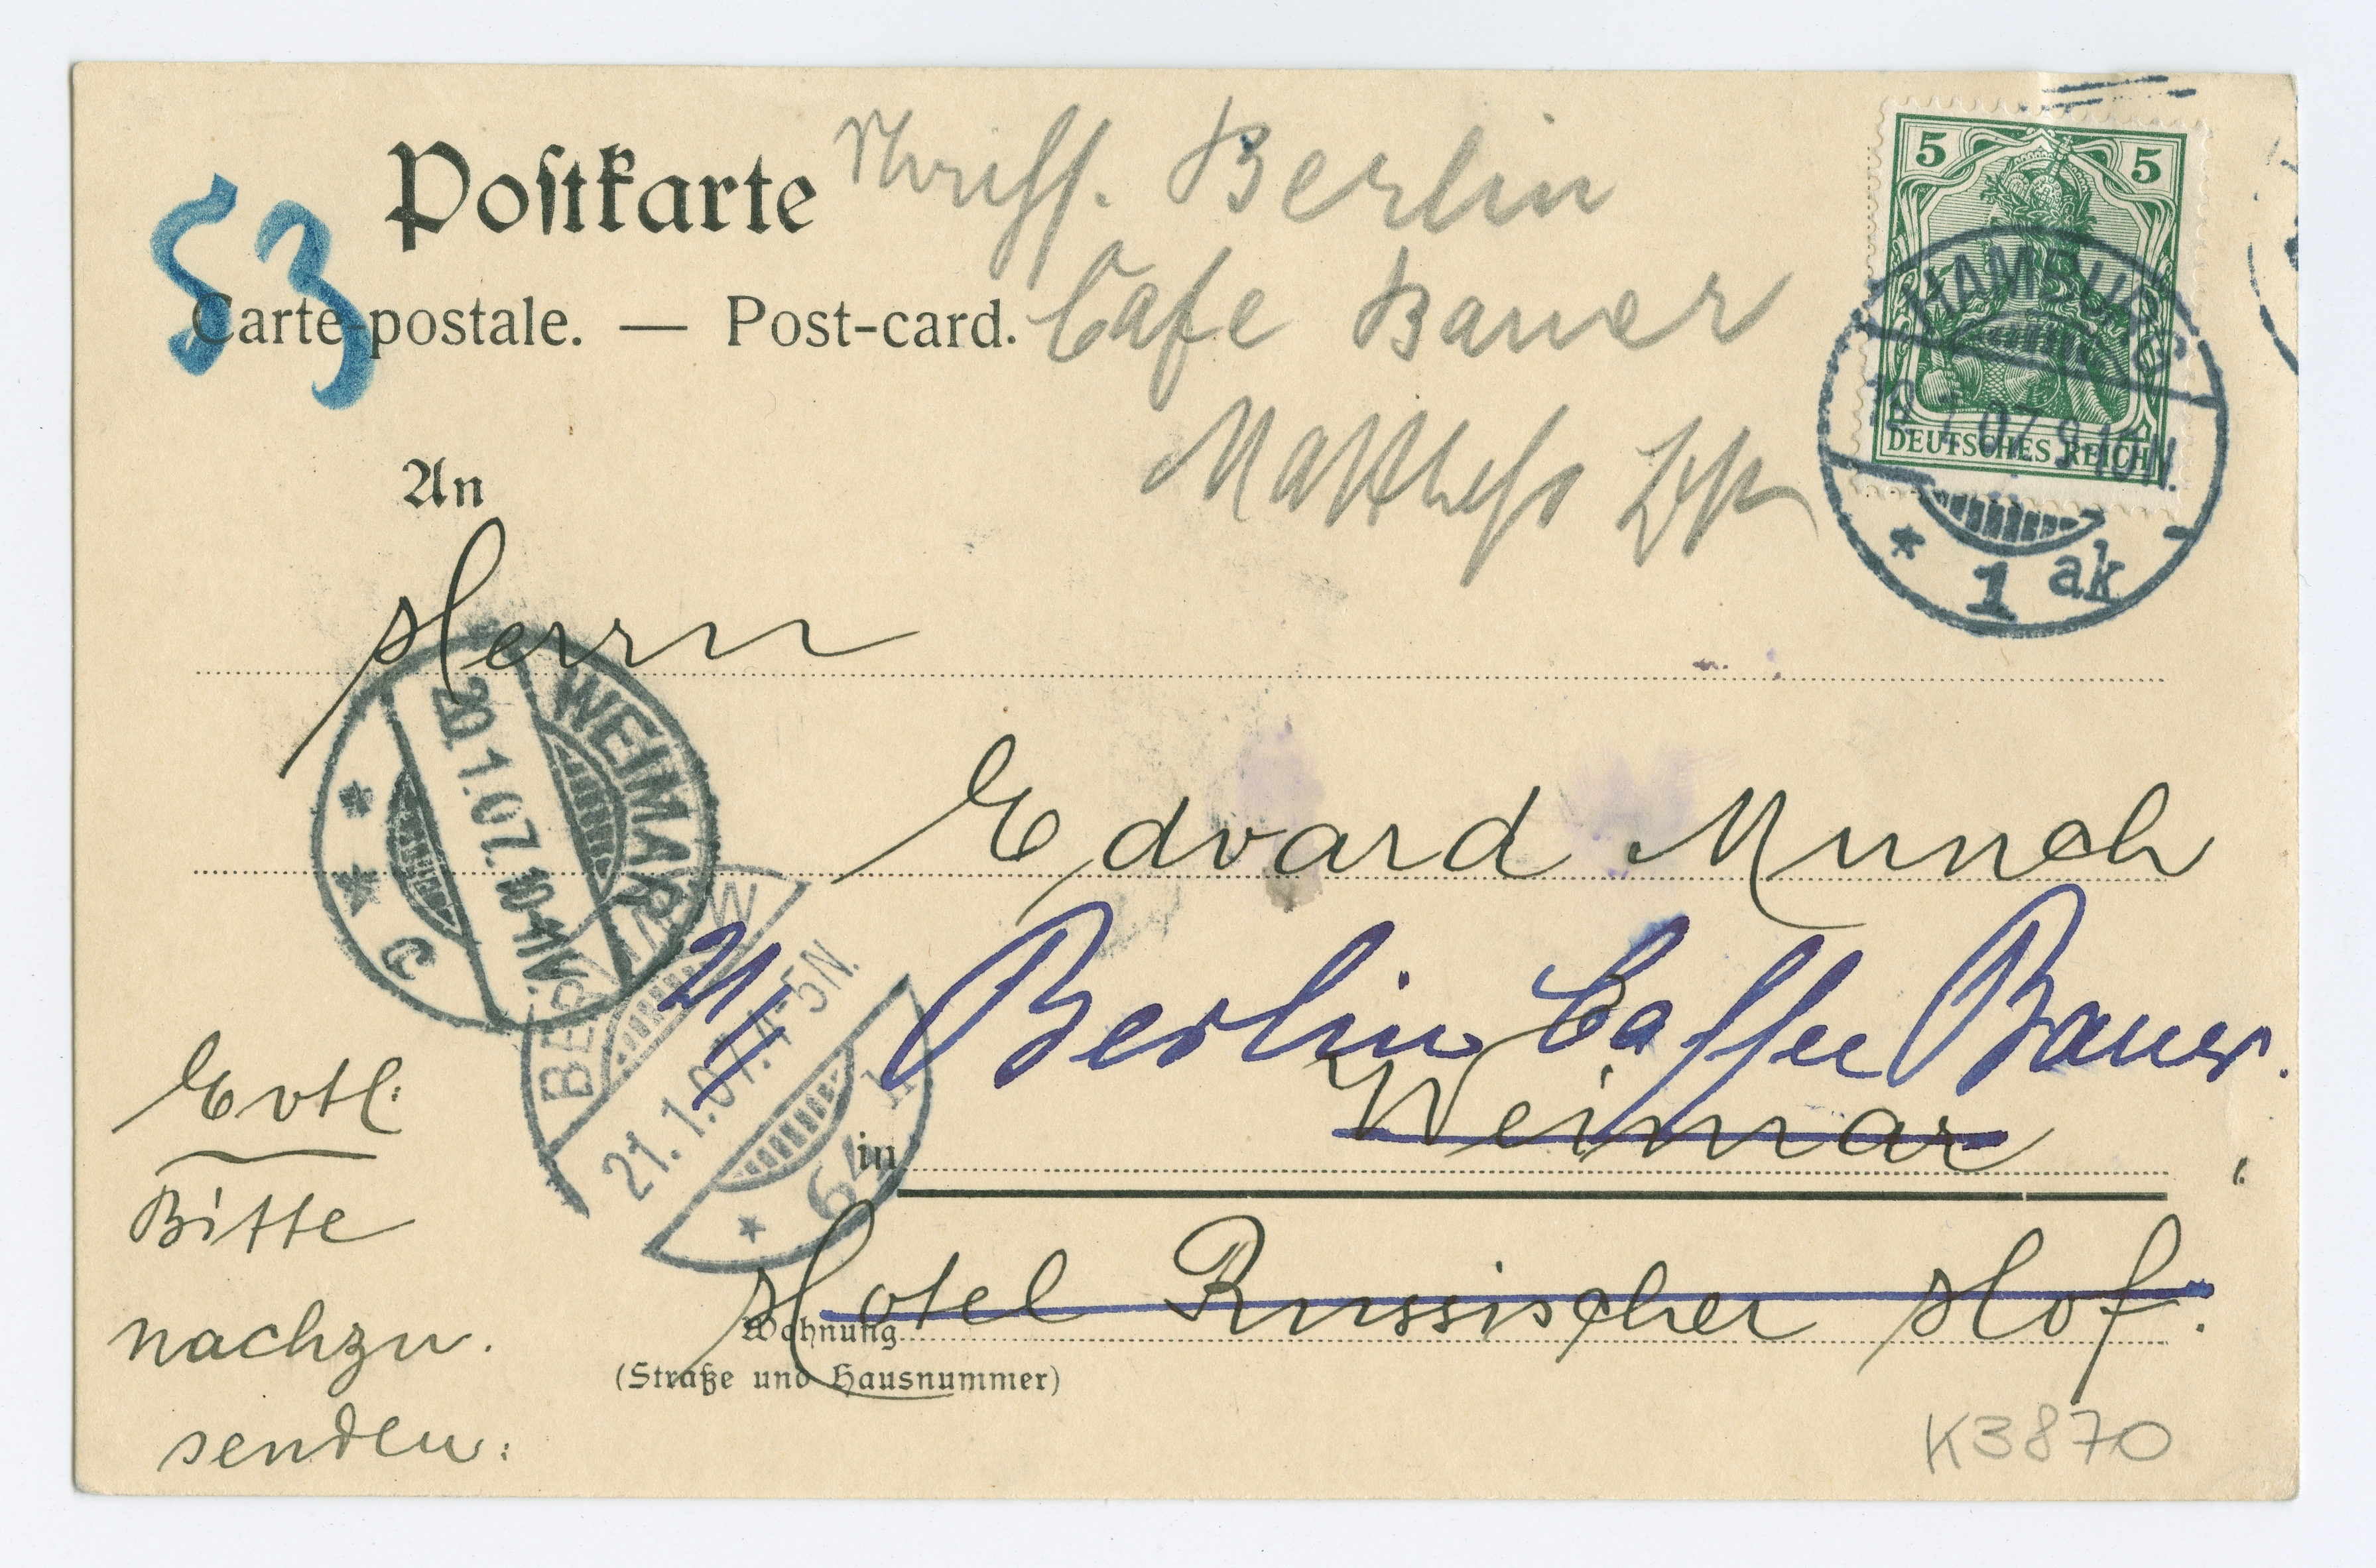 Postkarte
Berlin
Carte postale. — Post-card.
Cafe Bauer
53
5 5
DEUTSCHES REICH
HAMBURG
07. 9-10N.
* 1 ak
An
Herrn
Edvard Munch
WEIMAR
20.1.07.10-11V.
* * c
BERLIN NW
21.1.07.4-5N.
* 64
Berlin Caffee Bauer.
in Weimar
Hotel Russischer Hof.
Wohnung
(Straße und Hausnummer)
Evtl:
Bitte
nachzu.
senden:
K3870